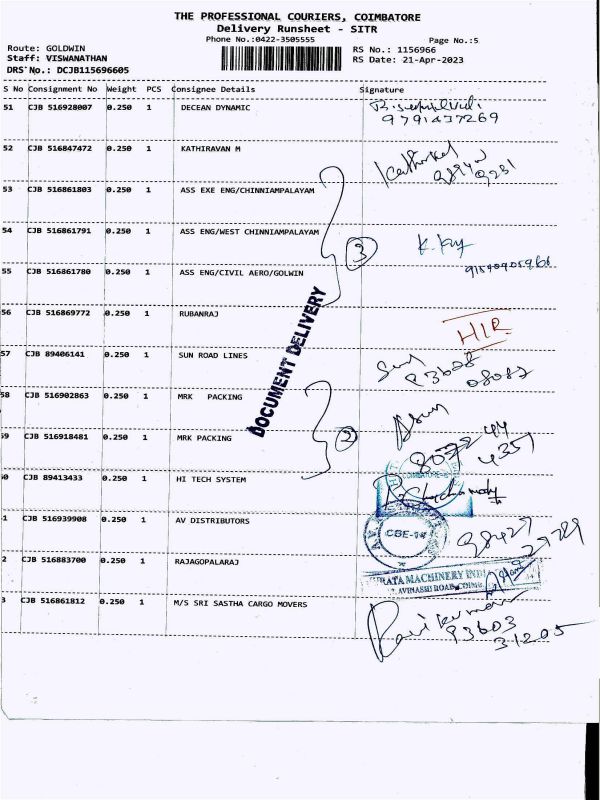 THE PROFESSIONAL COURIERS, COIMBATORE
Delivery Runsheet - SITR
Phone No.:0422-3505555
Page No.:5
Route: GOLDWIN
RS No.: 1156966
Staff: VISWANATHAN
RS Date: 21-Apr-2023
DRS No.: DCJB115696605
S No Consignment No Weight PCS Consignee Details Signature
51 CJB 516928007 0.250 1 DECEAN DYNAMIC
9791477269
52 CJB 516847472 0.250 1 KATHIRAVAN M
53 CJB 516861803 0.250 1 ASS EXE ENG/CHINNIAMPALAYAM
54 CJB 516861791 0.250 1 ASS ENG/WEST CHINNIAMPALAYAM
3
55 CJB 516861780 0.250 1 ASS ENG/CIVIL AERO/GOLWIN
56 CJB 516869772 0.250 1 RUBANRAJ
DOCUMENT DELIVERY
57 CJB 89406141 0.250 1 SUN ROAD LINES
93628
08082
58 CJB 516902863 0.250 1 MRK PACKING
59 CJB 516918481 0.250 1 MRK PACKING
2
8072 44
4351
0 CJB 89413433 0.250 1 HI TECH SYSTEM
1 CJB 516939908 0.250 1 AV DISTRIBUTORS
CBE-14
98427
29789
2 CJB 516883700 0.250 1 RAJAGOPALARAJ
RATA MACHINERY INDI
AVINASHI ROAD
3 CJB 516861812 0.250 1 M/S SRI SASTHA CARGO MOVERS
Ravikumar
93603
31205